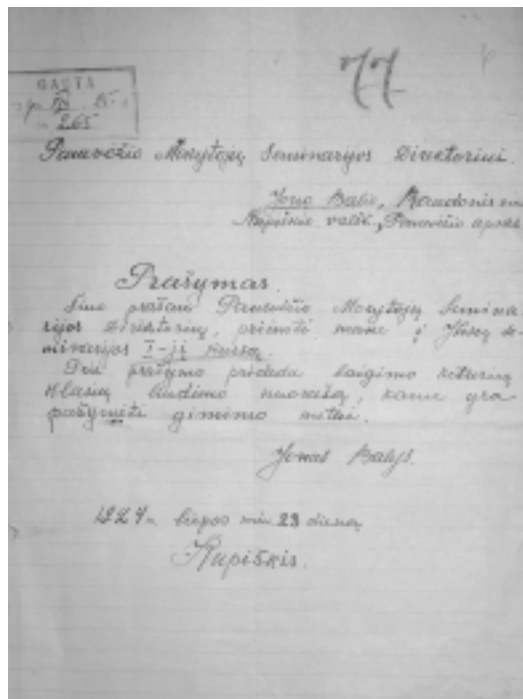 77
GAUTA
265
Panevėžio Mokytojų Seminarijos Direktoriui.
Jono Balio,
Kupiškio valšč., Panevėžio apskr.
Prašymas.
Šiuo prašau Panevėžio Mokytojų Semina-
rijos Direktorių, priimti mane į Jūsų Se-
minarijos I-jį kursą.
Prie prašymo pridedu baigimo keturių
klasių liudimo nuorašą, kame yra
pažymėti gimimo metai.
Jonas Balys.
1924 m. liepos mėn 29 dieną
Kupiškis.